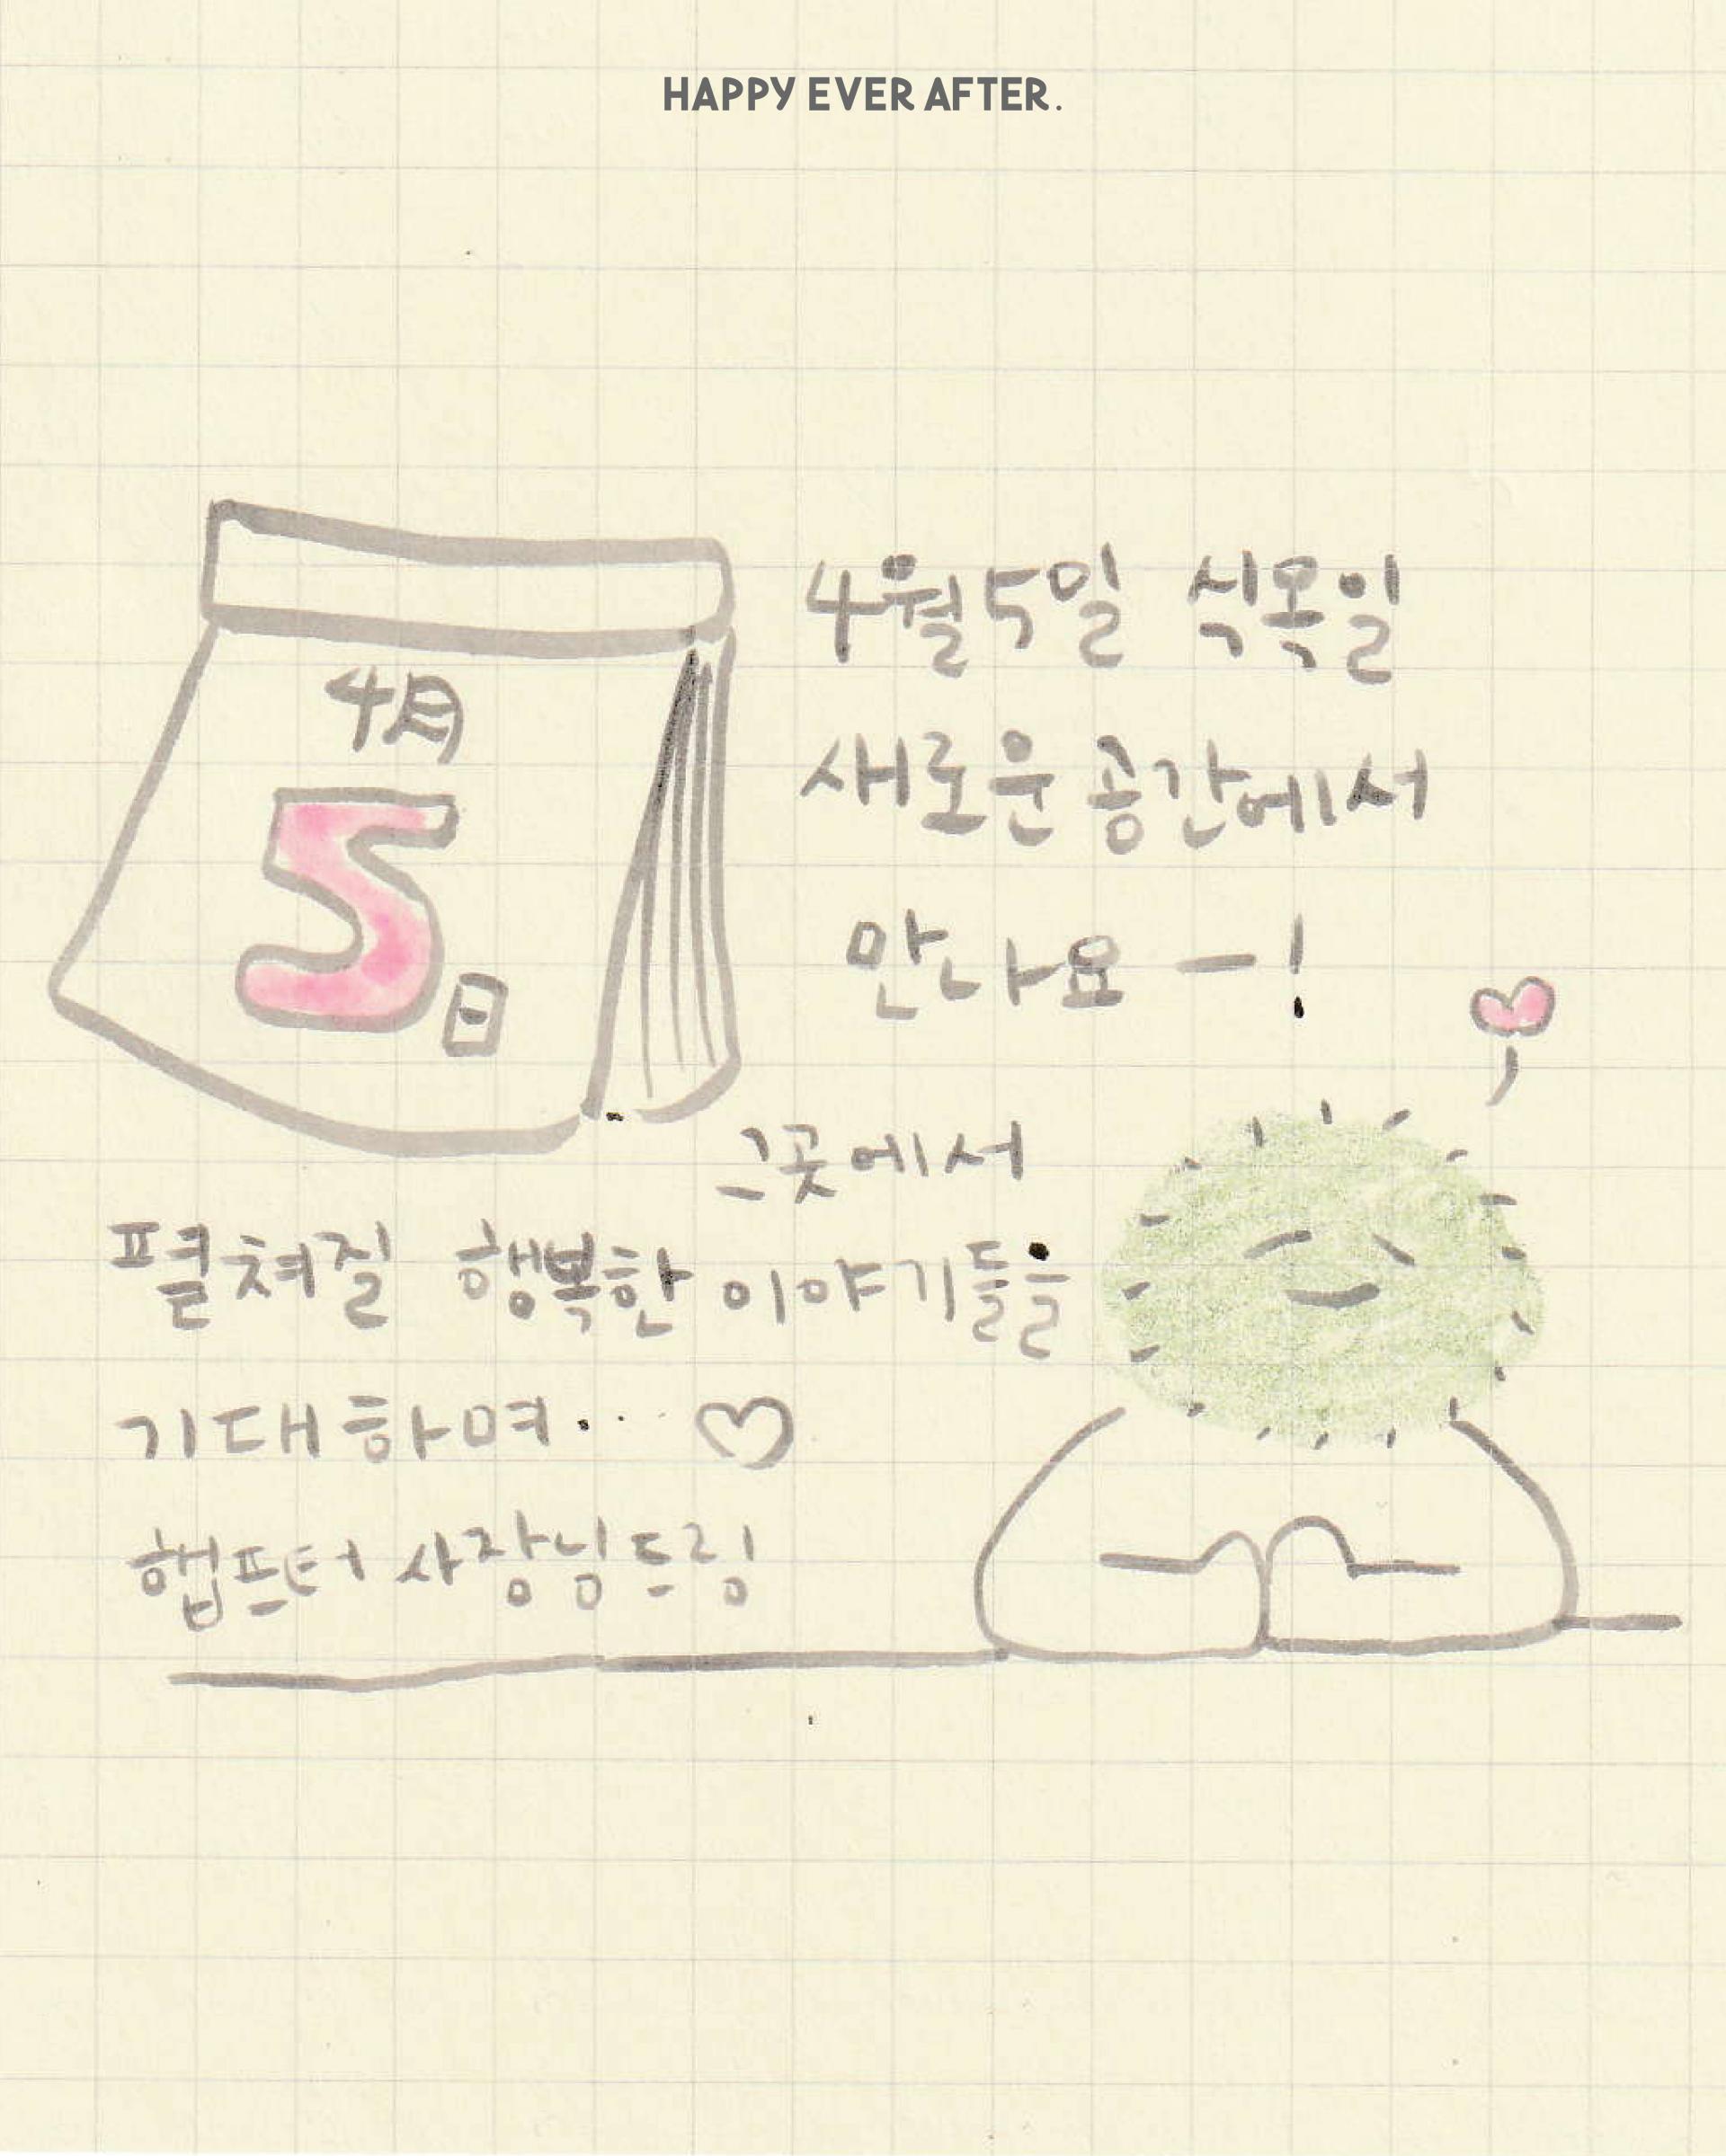 HAPPY EVER AFTER.
4월5일 식목일
4月
5日
새로운 공간에서
만나요 -!
그곳에서
펼쳐질 행복한 이야기들을
기대하며... ♡
햅프터 사장님드림